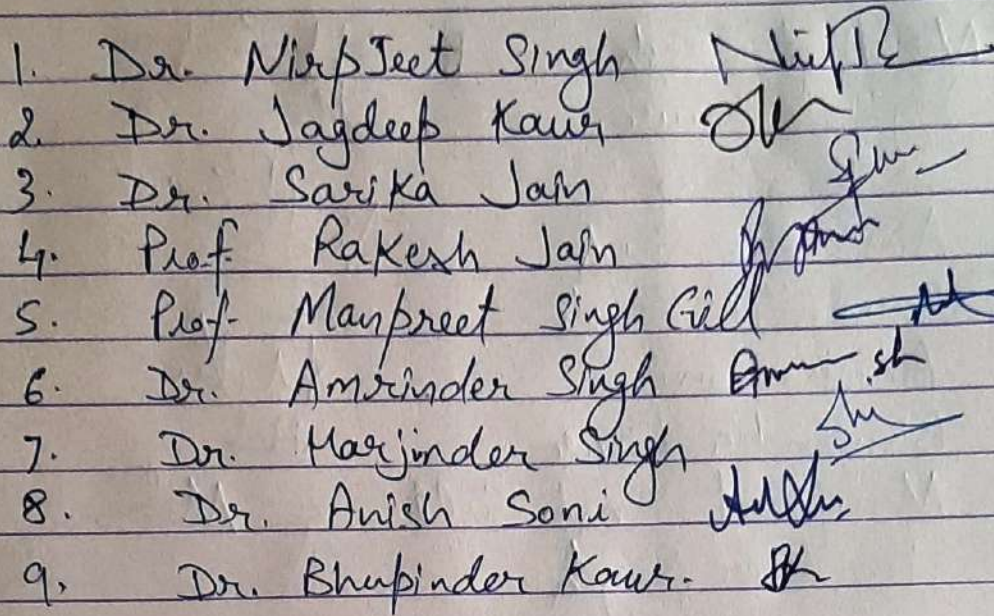 1. Dr. NirpJeet Singh
2. Dr. Jagdeep Kaur
3. Dr. Sarika Jain
4. Prof. Rakesh Jain
5. Prof. Manpreet Singh Gill
6. Dr. Amrinder Singh
7. Dr. Harjinder Singh
8. Dr. Anish Soni
9. Dr. Bhupinder Kaur.